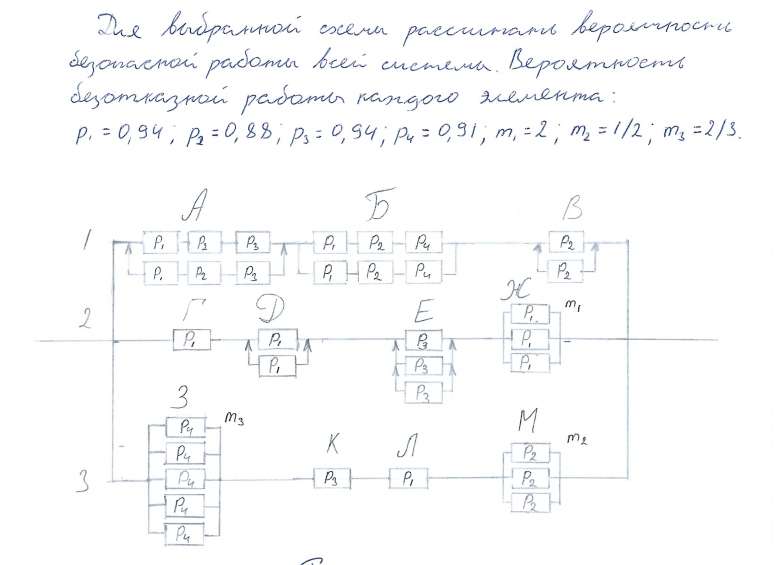 Для выбранной схемы рассчитать вероятность
безопасной работы всей системы. Вероятность
безотказной работы каждого элемента:
p₁ = 0,94; p₂ = 0,88; p₃ = 0,94; p₄ = 0,91; m₁ = 2; m₂ = 1/2; m₃ = 2/3.
А Б В
1 P₁ P₂ P₃ P₁ P₂ P₄ P₂
P₁ P₂ P₃ P₁ P₂ P₄ P₂
Г Д Е Ж
P₁ m₁
2 P₁ P₁ P₃ P₁
P₁ P₃ P₁
P₃
З К Л М
P₄ m₃
P₄ P₂ m₂
3 P₄ P₃ P₁ P₂
P₄ P₂
P₄